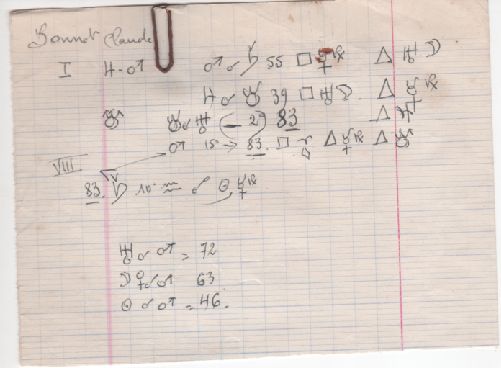 Bonnet Claude
I ♃-♂ ♂☌♄ 55 □☿℞ △♅☽
♃☌ 39 □♅☽ △☿℞
☌♅ (-29) 83 △♃
♂ 15 → 83. □ △☿℞ △
VIII
83. ♄ 10° ♒ ☍ ☉☿℞
♅☌♂ = 72
☽♀☌♂ 63
☉☌♂ = 46.